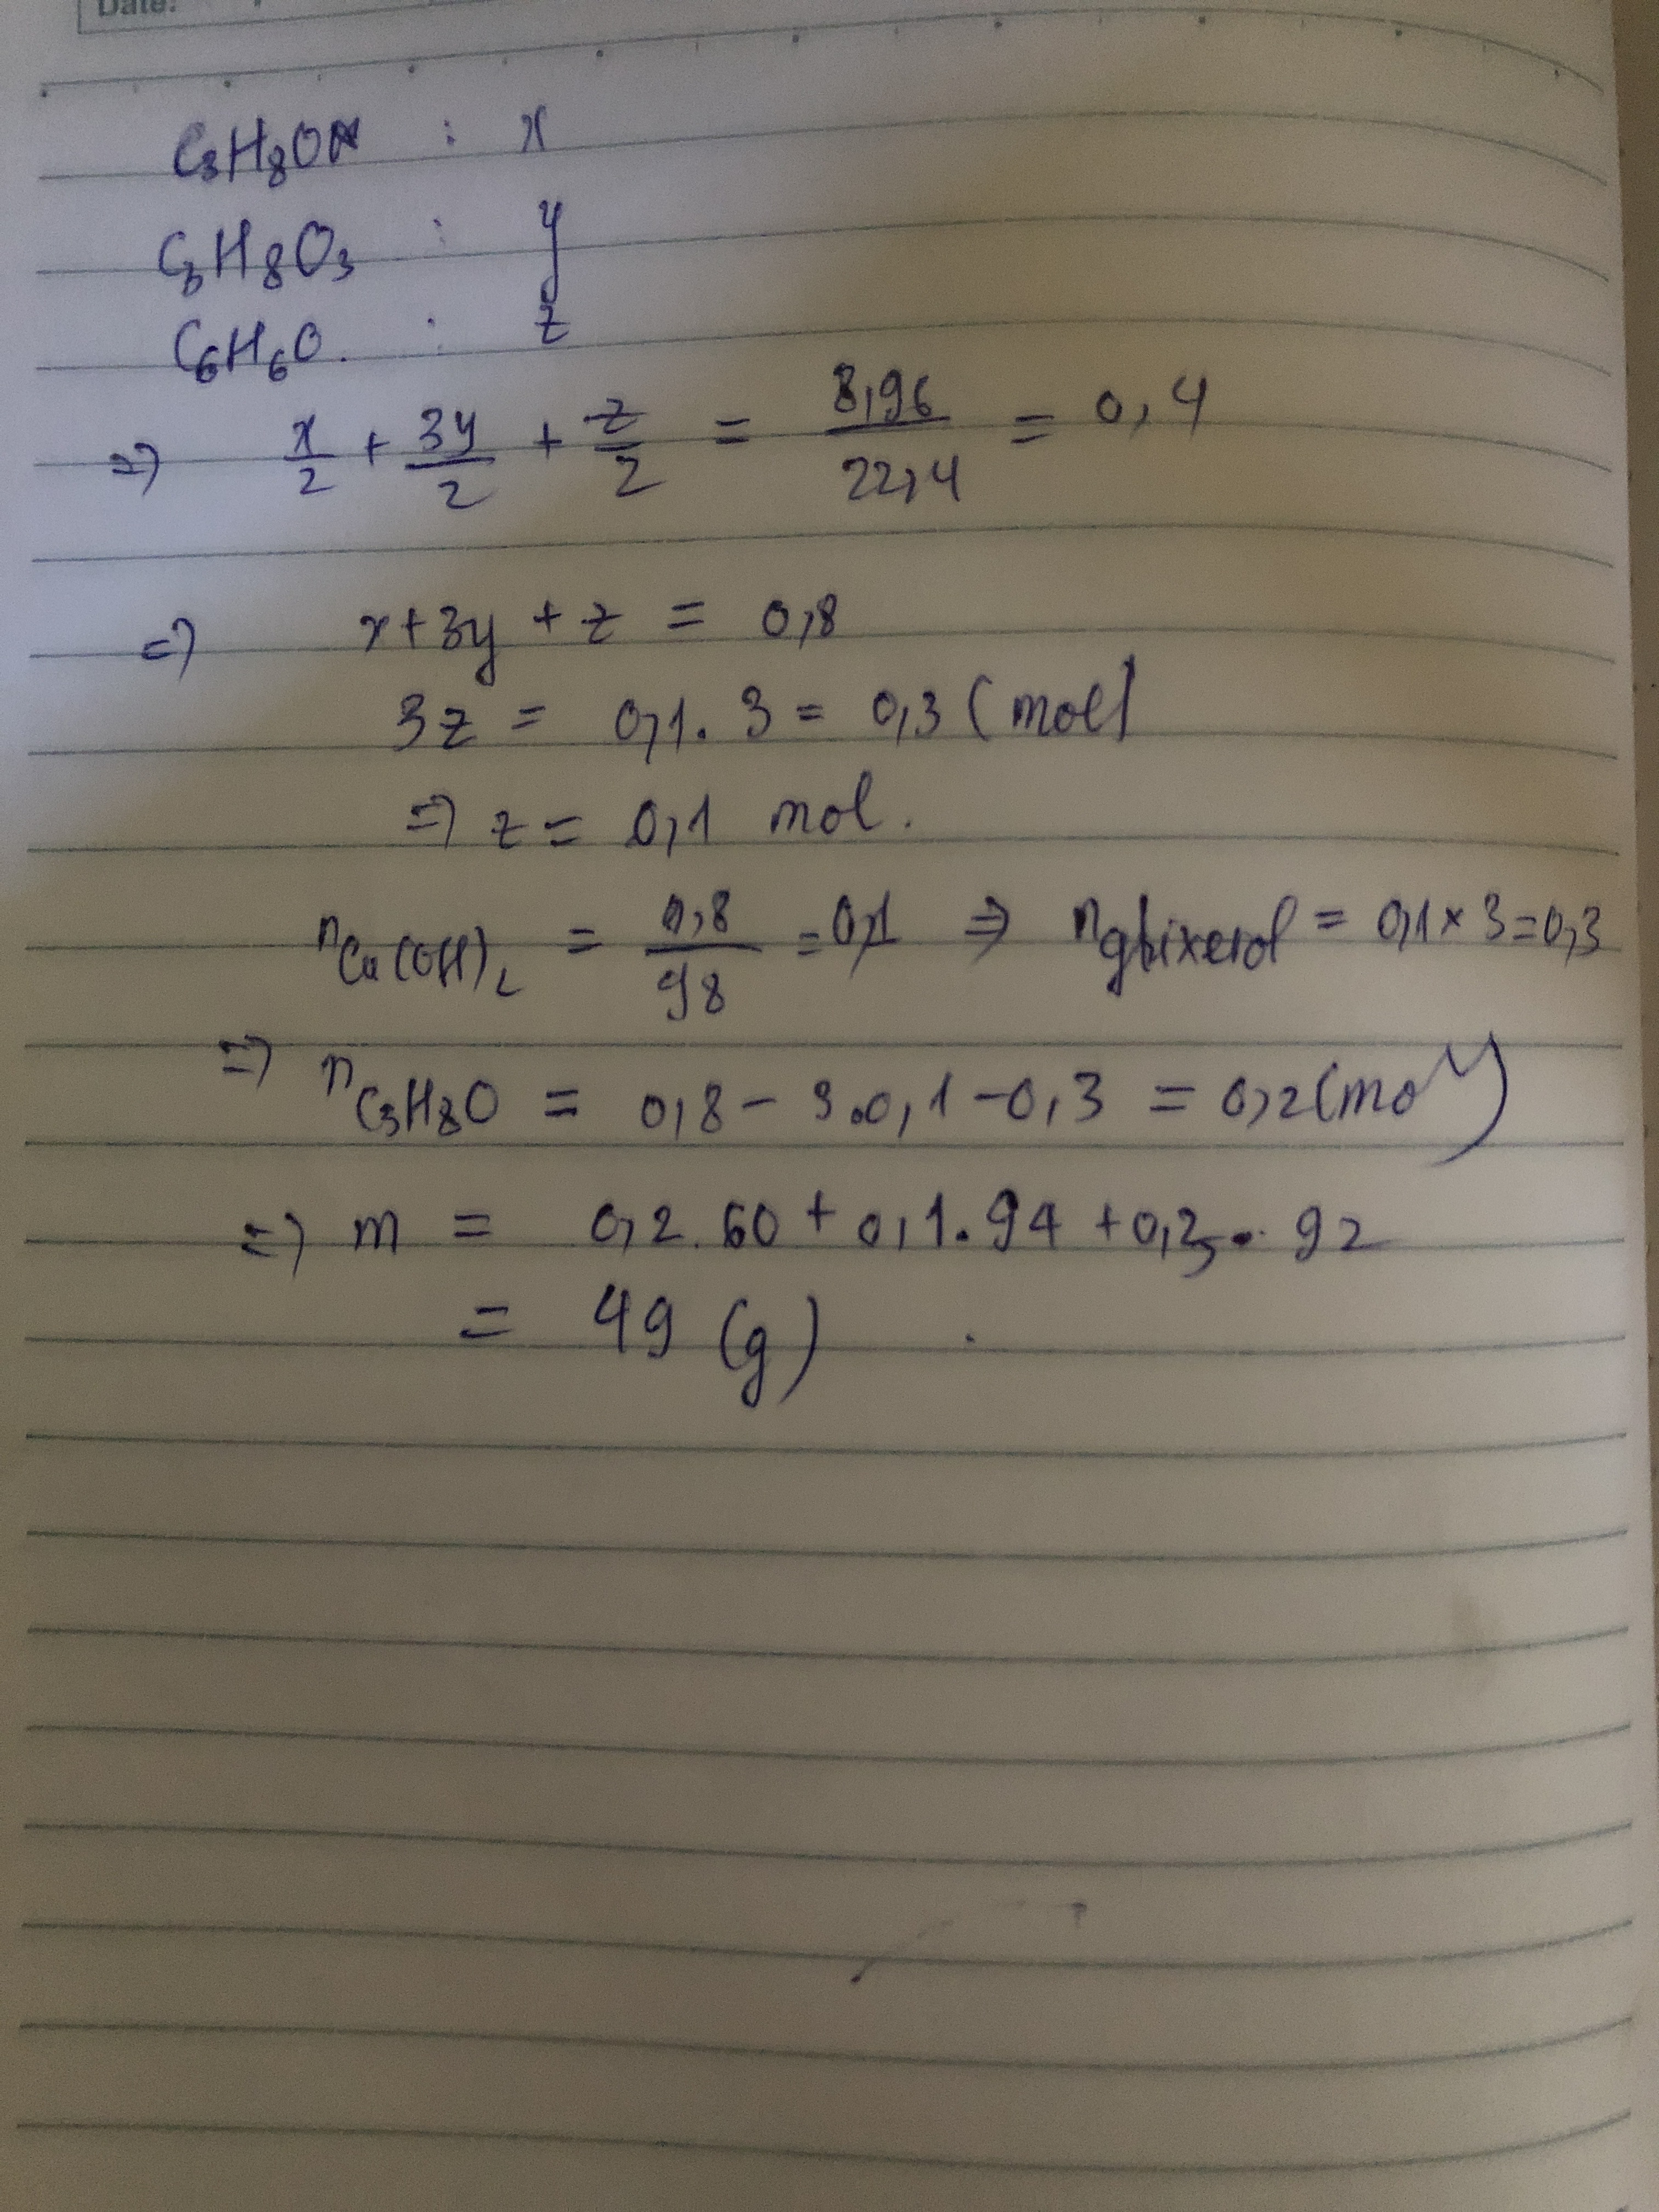 Date:
C3H8O : x
C3H8O3 : y
C6H6O. : z
=> x/2 + 3y/2 + z/2 = 8,96/22,4 = 0,4
=> x+3y + z = 0,8
3z = 0,1. 3 = 0,3 (mol)
=> z = 0,1 mol.
nCu(OH)2 = 9,8/98 = 0,1 => nglixerol = 0,1 × 3 = 0,3
=> nC3H8O = 0,8 - 3.0,1 - 0,3 = 0,2 (mol)
=> m = 0,2.60 + 0,1.94 + 0,3. 92
= 49 (g)